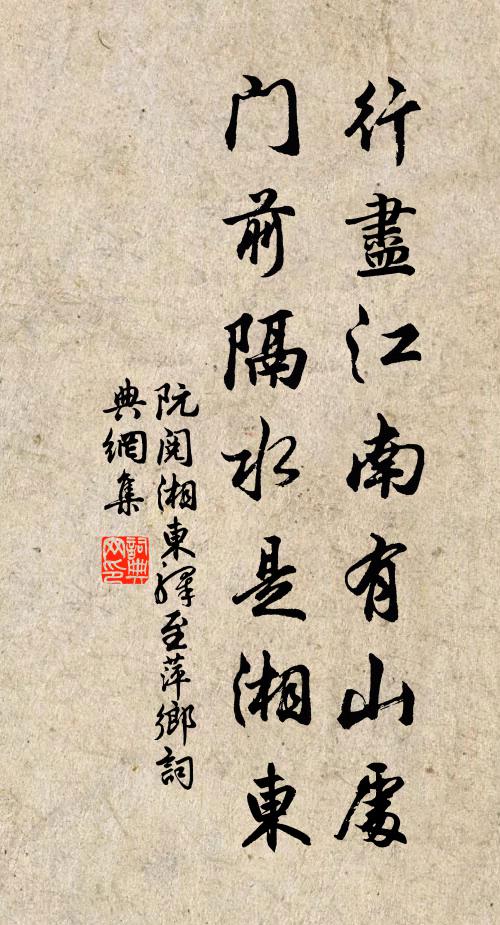 行盡江南有山處
门前隔水是湘東
阮閱湘東驛至萍鄉詞
典網集
詞典
网印